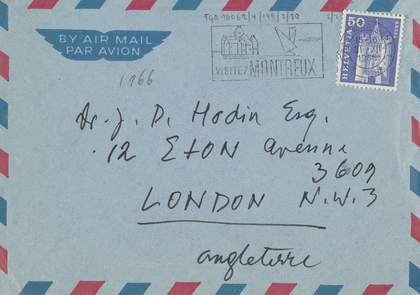 BY AIR MAIL
PAR AVION
TGA 20062/4/199/3/30
1966
VISITEZ MONTREUX
50
HELVETIA
Dr. J. P. Hodin Esq.
12 Eton Avenue
3609
LONDON N.W.3
Angleterre